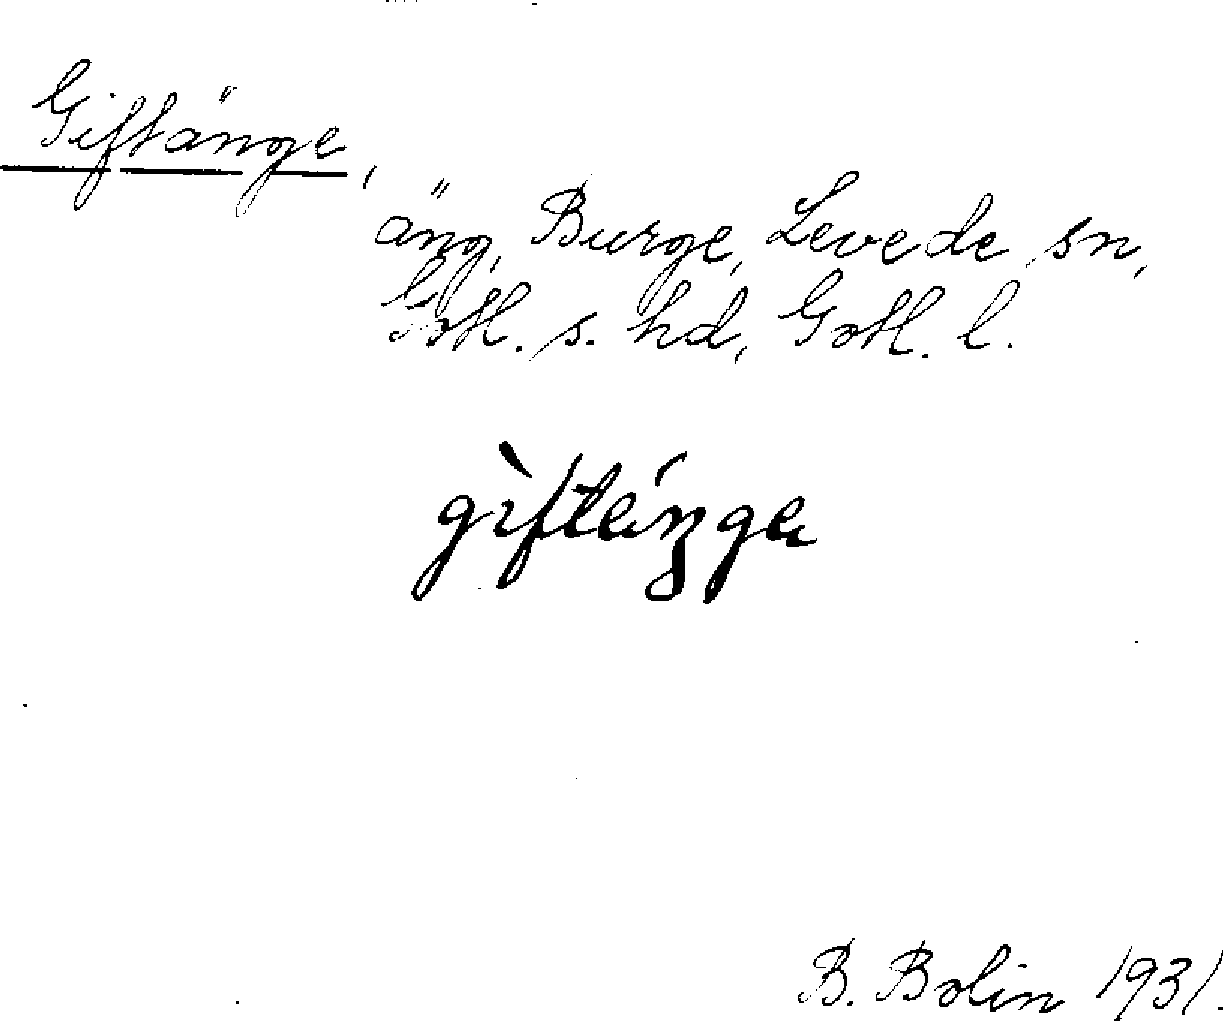 Giftänge,
äng, Burge, Levede sn,
Gotl. s. hd, Gotl. l.
gìftéŋge
B. Bolin 1931.